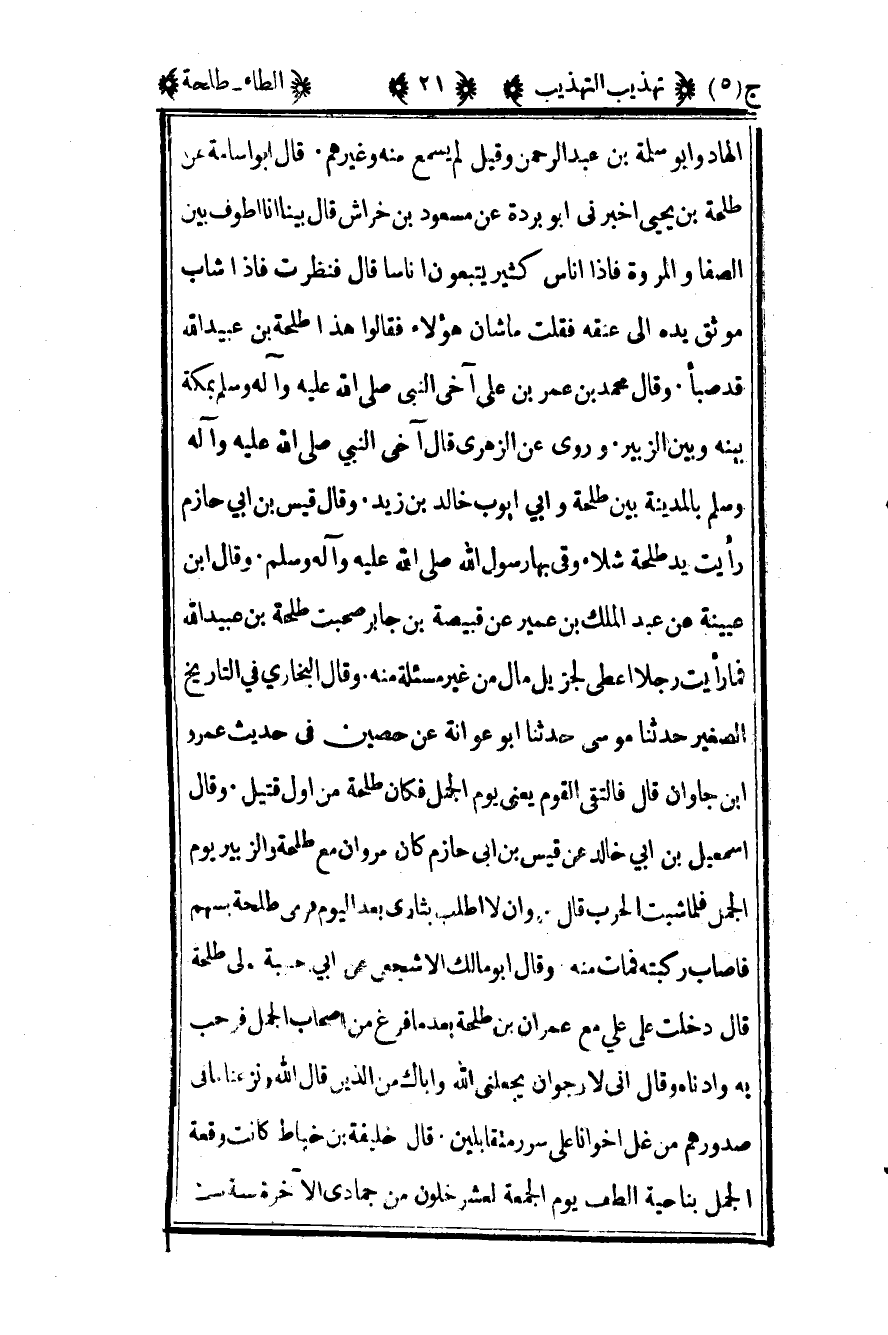 ج (٥) ﴿ تهذيب التهذيب ﴾ ﴿ ٢١ ﴾ ﴿ الطاء ـ طلحة ﴾
الهاد وابو سلمة بن عبدالرحمن وقيل لم يسمع منه وغيرهم . قال ابواسامة عن
طلحة بن يحيى اخبرنى ابو بردة عن مسعود بن خراش قال بينا انا اطوف بين
الصفا و المروة فاذا اناس كثير يتبعون اناسا قال فنظرت فاذا شاب
موثق يده الى عنقه فقلت ماشان هؤلاء فقالوا هذا طلحة بن عبيدالله
قد صبأ . وقال محمد بن عمر بن على آخى النبى صلى الله عليه وآله وسلم بمكة
بينه وبين الزبير . و روى عن الزهرى قال آخى النبي صلى الله عليه وآله
وسلم بالمدينة بين طلحة و ابي ايوب خالد بن زيد . وقال قيس بن ابي حازم
رأيت يد طلحة شلاء وقى بها رسول الله صلى الله عليه وآله وسلم . وقال ابن
عيينة عن عبد الملك بن عمير عن قبيصة بن جابر صحبت طلحة بن عبيدالله
فما رأيت رجلا اعطى لجزيل مال من غير مسئلة منه . وقال البخاري في التاريخ
الصغير حدثنا موسى حدثنا ابو عوانة عن حصين فى حديث عمرو
ابن جاوان قال فالتقى القوم يعنى يوم الجمل فكان طلحة من اول قتيل . وقال
اسمعيل بن ابي خالد عن قيس بن ابى حازم كان مروان مع طلحة والزبير يوم
الجمل فلما شبت الحرب قال مروان لا اطلب بثارى بعد اليوم فرمى طلحة بسهم
فاصاب ركبته فمات منه وقال ابو مالك الاشجعى عن ابي حبيبة مولى طلحة
قال دخلت على علي مع عمران بن طلحة بعد ما فرغ من اصحاب الجمل فرحب
به وادناه وقال انى لارجو ان يجعلنى الله واباك من الذين قال الله ونزعنا مافى
صدورهم من غل اخوانا على سرر متقابلين . قال خليفة بن خياط كانت وقعة
الجمل بناحية الطف يوم الجمعة لعشر خلون من جمادى الآخرة سنة ست